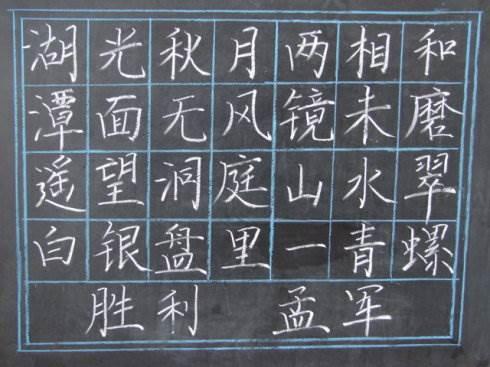 湖光秋月两相和
潭面无风镜未磨
遥望洞庭山水翠
白银盘里一青螺
胜利 孟军